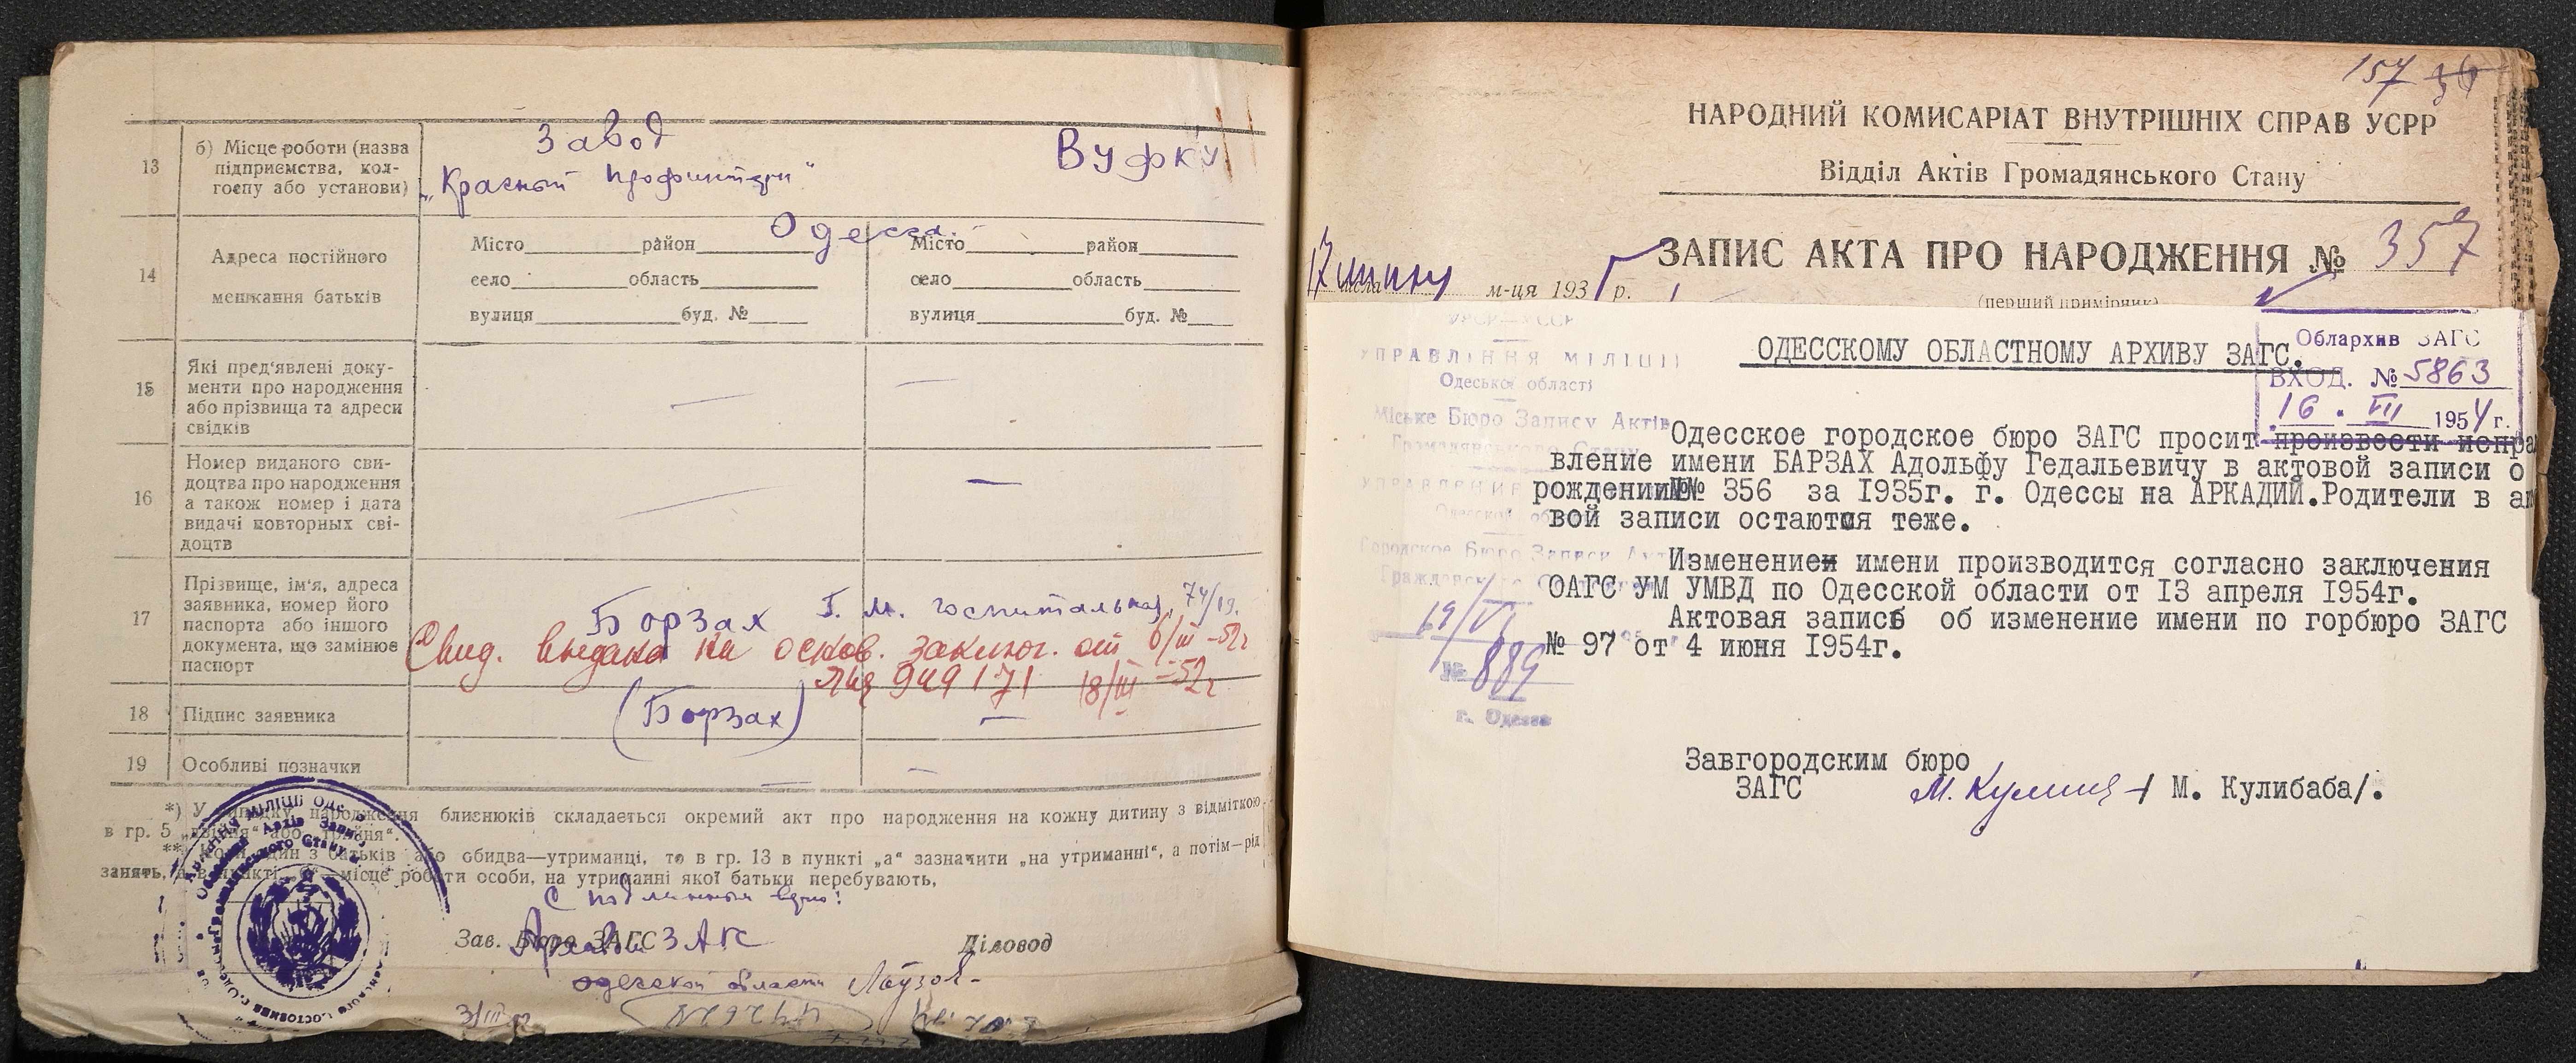 13
б) Місце роботи (назва
підприємства, кол-
госпу або установи)
Завод
„Красный Профинтерн“
Вуфку
14
Адреса постійного
мешкання батьків
Одесса.
Місто район
село область
вулиця буд. №
Місто район
село область
вулиця буд. №
15
Які пред'явлені доку-
менти про народження
або прізвища та адреси
свідків
16
Номер виданого сви-
доцтва про народження
а також номер і дата
видачі повторних сві-
доцтв
17
Прізвище, ім'я, адреса
заявника, номер його
паспорта або іншого
документа, що замінює
паспорт
Борзах Г. М. госпитальная, 74/19.
Свид. выдано на основ. заключ. от 6/III-52г
949171 18/III-52г
18
Підпис заявника
(Борзах)
19
Особливі позначки
*) У випадку народження близнюків складається окремий акт про народження на кожну дитину з відміткою
в гр. 5 „двійня“ або „трійня“.
**) Коли один з батьків або обидва—утриманці, то в гр. 13 в пункті „а“ зазначити „на утриманні“, а потім—рід
занять, а в пункті „б“—місце роботи особи, на утриманні якої батьки перебувають,
С подлинным верно:
Зав. Бюро ЗАГС
ЗАГС
Діловод
одесской области
157 36
НАРОДНИЙ КОМИСАРІАТ ВНУТРІШНІХ СПРАВ УСРР
Відділ Актів Громадянського Стану
ЗАПИС АКТА ПРО НАРОДЖЕННЯ № 357
числа м-ця 1935 р.
(перший примірник)
УПРАВЛІННЯ МІЛІЦІЇ
Одеської області
Міське Бюро Запису Актів
Громадянського Стану
УПРАВЛЕНИЕ
Одесской
Городское Бюро Записи Актов
19/VI
№ 889
г. Одесса
Облархив ЗАГС
ВХОД. № 5863
16. VII 1954 г.
ОДЕССКОМУ ОБЛАСТНОМУ АРХИВУ ЗАГС.
Одесское городское бюро ЗАГС просит произвести испра
вление имени БАРЗАХ Адольфу Гедальевичу в актовой записи о
рождении №№ 356 за 1935г. г. Одессы на АРКАДИЙ.Родители в ак
вой записи остаются теже.
Изменение имени производится согласно заключения
ОАГС УМ УМВД по Одесской области от 13 апреля 1954г.
Актовая запись об изменение имени по горбюро ЗАГС
№ 97 от 4 июня 1954г.
Завгородским бюро
ЗАГС / М. Кулибаба/.